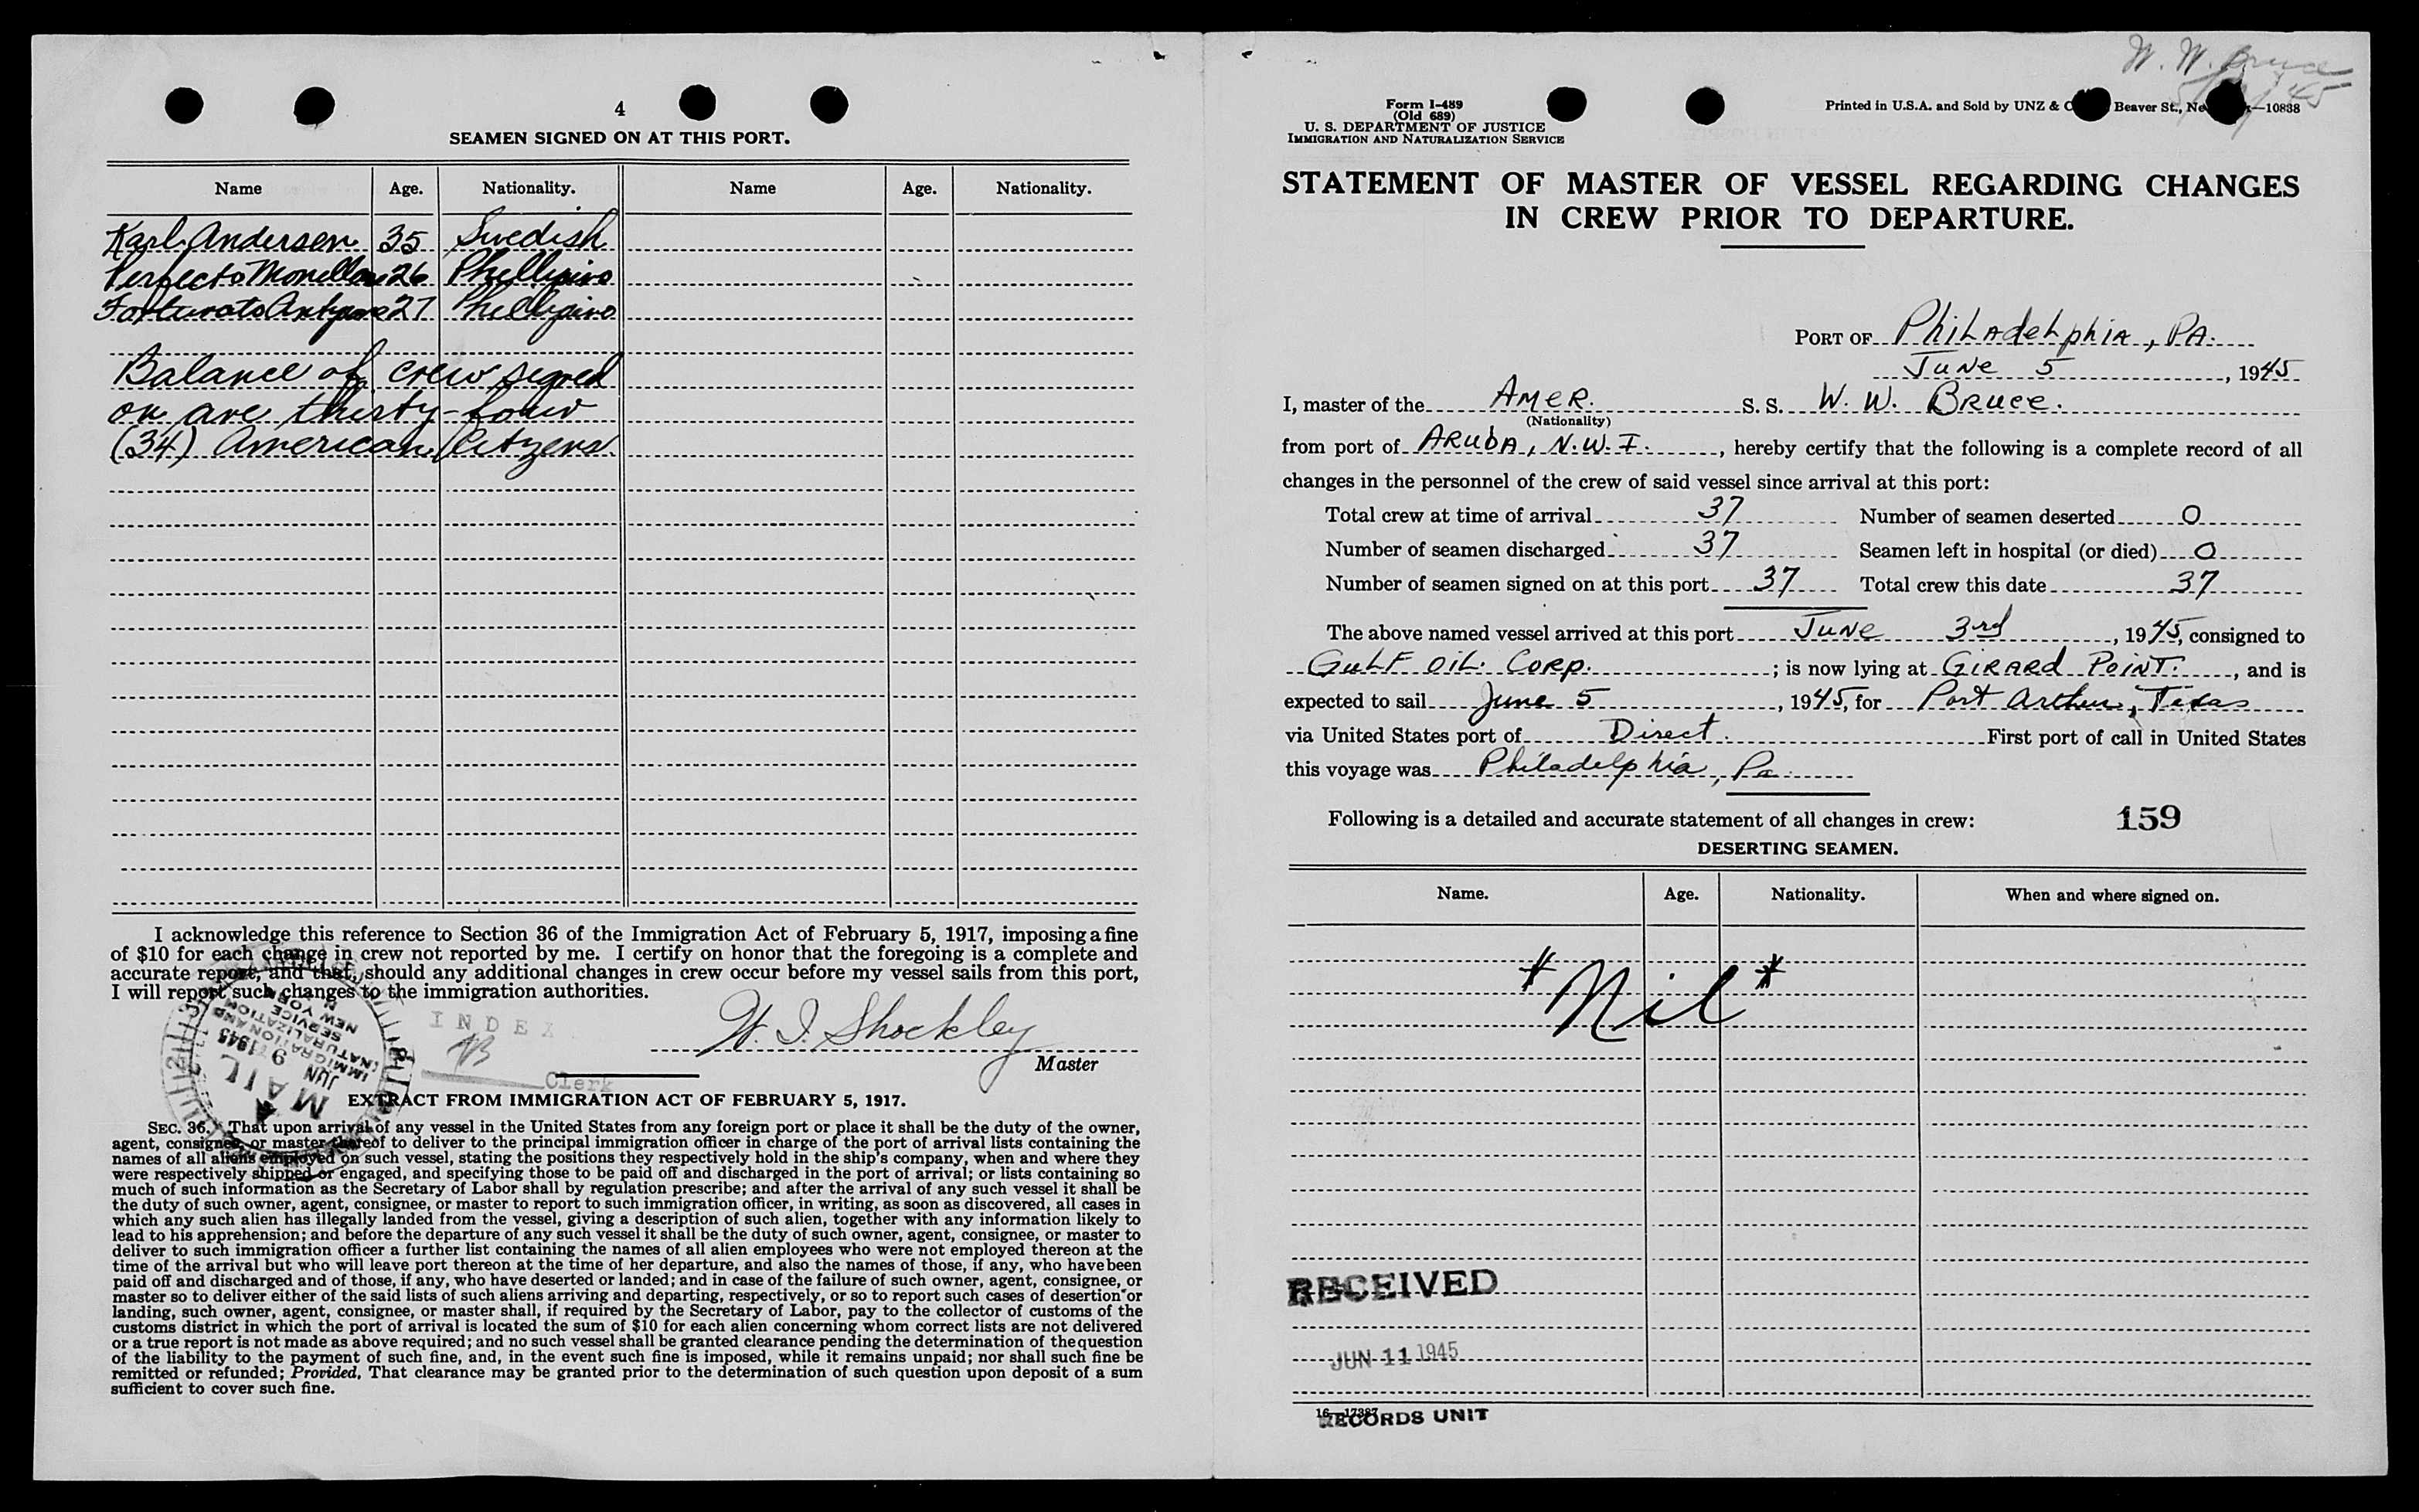 4
SEAMEN SIGNED ON AT THIS PORT.
Name Age. Nationality. Name Age. Nationality.
Karl Andersen 35 Swedish
Perfecto 26 Phillipino
Fortunato 27 Phillipino
Balance of crew signed
on are thirty-four
(34) American Citzens.
I acknowledge this reference to Section 36 of the Immigration Act of February 5, 1917, imposing a fine
of $10 for each change in crew not reported by me. I certify on honor that the foregoing is a complete and
accurate report, and that, should any additional changes in crew occur before my vessel sails from this port,
I will report such changes to the immigration authorities.
W. I. Shockley
Master
INDEX
Clerk
MAIL
JUN 9 1945
IMMIGRATION AND
NATURALIZATION
SERVICE
NEW YORK
EXTRACT FROM IMMIGRATION ACT OF FEBRUARY 5, 1917.
SEC. 36. That upon arrival of any vessel in the United States from any foreign port or place it shall be the duty of the owner,
agent, consignee, or master thereof to deliver to the principal immigration officer in charge of the port of arrival lists containing the
names of all aliens employed on such vessel, stating the positions they respectively hold in the ship's company, when and where they
were respectively shipped or engaged, and specifying those to be paid off and discharged in the port of arrival; or lists containing so
much of such information as the Secretary of Labor shall by regulation prescribe; and after the arrival of any such vessel it shall be
the duty of such owner, agent, consignee, or master to report to such immigration officer, in writing, as soon as discovered, all cases in
which any such alien has illegally landed from the vessel, giving a description of such alien, together with any information likely to
lead to his apprehension; and before the departure of any such vessel it shall be the duty of such owner, agent, consignee, or master to
deliver to such immigration officer a further list containing the names of all alien employees who were not employed thereon at the
time of the arrival but who will leave port thereon at the time of her departure, and also the names of those, if any, who have been
paid off and discharged and of those, if any, who have deserted or landed; and in case of the failure of such owner, agent, consignee, or
master so to deliver either of the said lists of such aliens arriving and departing, respectively, or so to report such cases of desertion or
landing, such owner, agent, consignee, or master shall, if required by the Secretary of Labor, pay to the collector of customs of the
customs district in which the port of arrival is located the sum of $10 for each alien concerning whom correct lists are not delivered
or a true report is not made as above required; and no such vessel shall be granted clearance pending the determination of the question
of the liability to the payment of such fine, and, in the event such fine is imposed, while it remains unpaid; nor shall such fine be
remitted or refunded; Provided, That clearance may be granted prior to the determination of such question upon deposit of a sum
sufficient to cover such fine.
W. W. Bruce
Form I-489
(Old 689)
U. S. DEPARTMENT OF JUSTICE
IMMIGRATION AND NATURALIZATION SERVICE
Printed in U.S.A. and Sold by UNZ & C Beaver St., Ne —10838
STATEMENT OF MASTER OF VESSEL REGARDING CHANGES
IN CREW PRIOR TO DEPARTURE.
PORT OF Philadelphia, PA.
June 5, 1945
I, master of the Amer. S. S. W. W. Bruce.
(Nationality)
from port of Aruba, N.W.I., hereby certify that the following is a complete record of all
changes in the personnel of the crew of said vessel since arrival at this port:
Total crew at time of arrival 37 Number of seamen deserted 0
Number of seamen discharged 37 Seamen left in hospital (or died) 0
Number of seamen signed on at this port 37 Total crew this date 37
The above named vessel arrived at this port June 3rd, 1945, consigned to
Gulf Oil Corp.; is now lying at Girard Point., and is
expected to sail June 5, 1945, for Port Arthur, Texas
via United States port of Direct. First port of call in United States
this voyage was Philadelphia, Pa.
Following is a detailed and accurate statement of all changes in crew: 159
DESERTING SEAMEN.
Name. Age. Nationality. When and where signed on.
* Nil *
RECEIVED
JUN 11 1945
RECORDS UNIT
16—17387